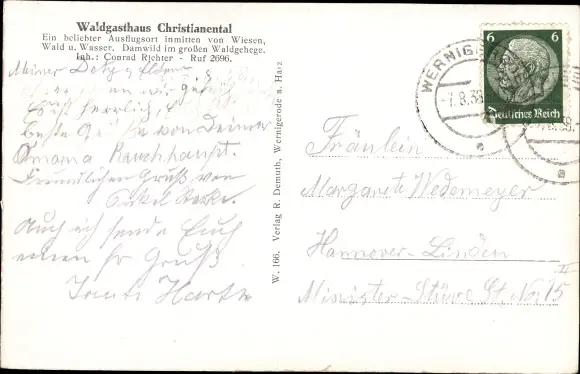 Waldgasthaus Christianental
Ein beliebter Ausflugsort inmitten von Wiesen,
Wald u. Wasser. Damwild im großen Waldgehege.
Inh.: Conrad Richter - Ruf 2696.
Meiner
wir
ist herrlich,
beste Grüße von Deiner
Omama Rauchhaupt.
Freundlichen Gruß von
Onkel
Auch ich sende Euch
einen Gruß
Tante
W. 166. Verlag R. Demuth, Wernigerode a. Harz
6 6
Deutsches Reich
WERNIG
8.38
a
a
Fräulein
Margarete Wedemeyer
Hannover-Linden
II
Minister-Stüve St. No. 15